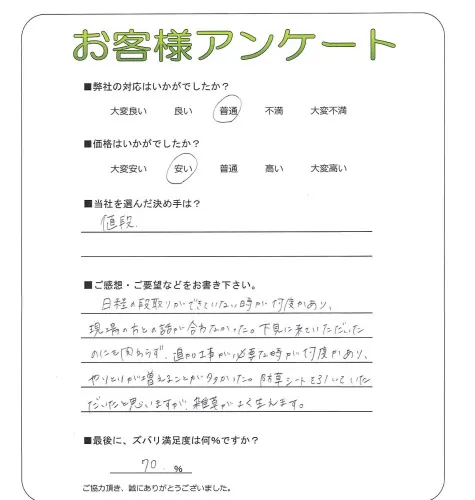 お客様アンケート
■弊社の対応はいかがでしたか?
大変良い 良い 普通 不満 大変不満
■価格はいかがでしたか?
大変安い 安い 普通 高い 大変高い
■当社を選んだ決め手は?
値段.
■ご感想・ご要望などをお書き下さい。
日程の段取りができていない時が何度かあり、
現場の方との話が合わなかった。下見に来ていただいた
のにも関わらず、追加工事が必要な時が何度かあり、
やりとりが増えることが多かった。防草シートを引いていた
だいたと思いますが、雑草がよく生えます。
■最後に、ズバリ満足度は何%ですか?
70. %
ご協力頂き、誠にありがとうございました。